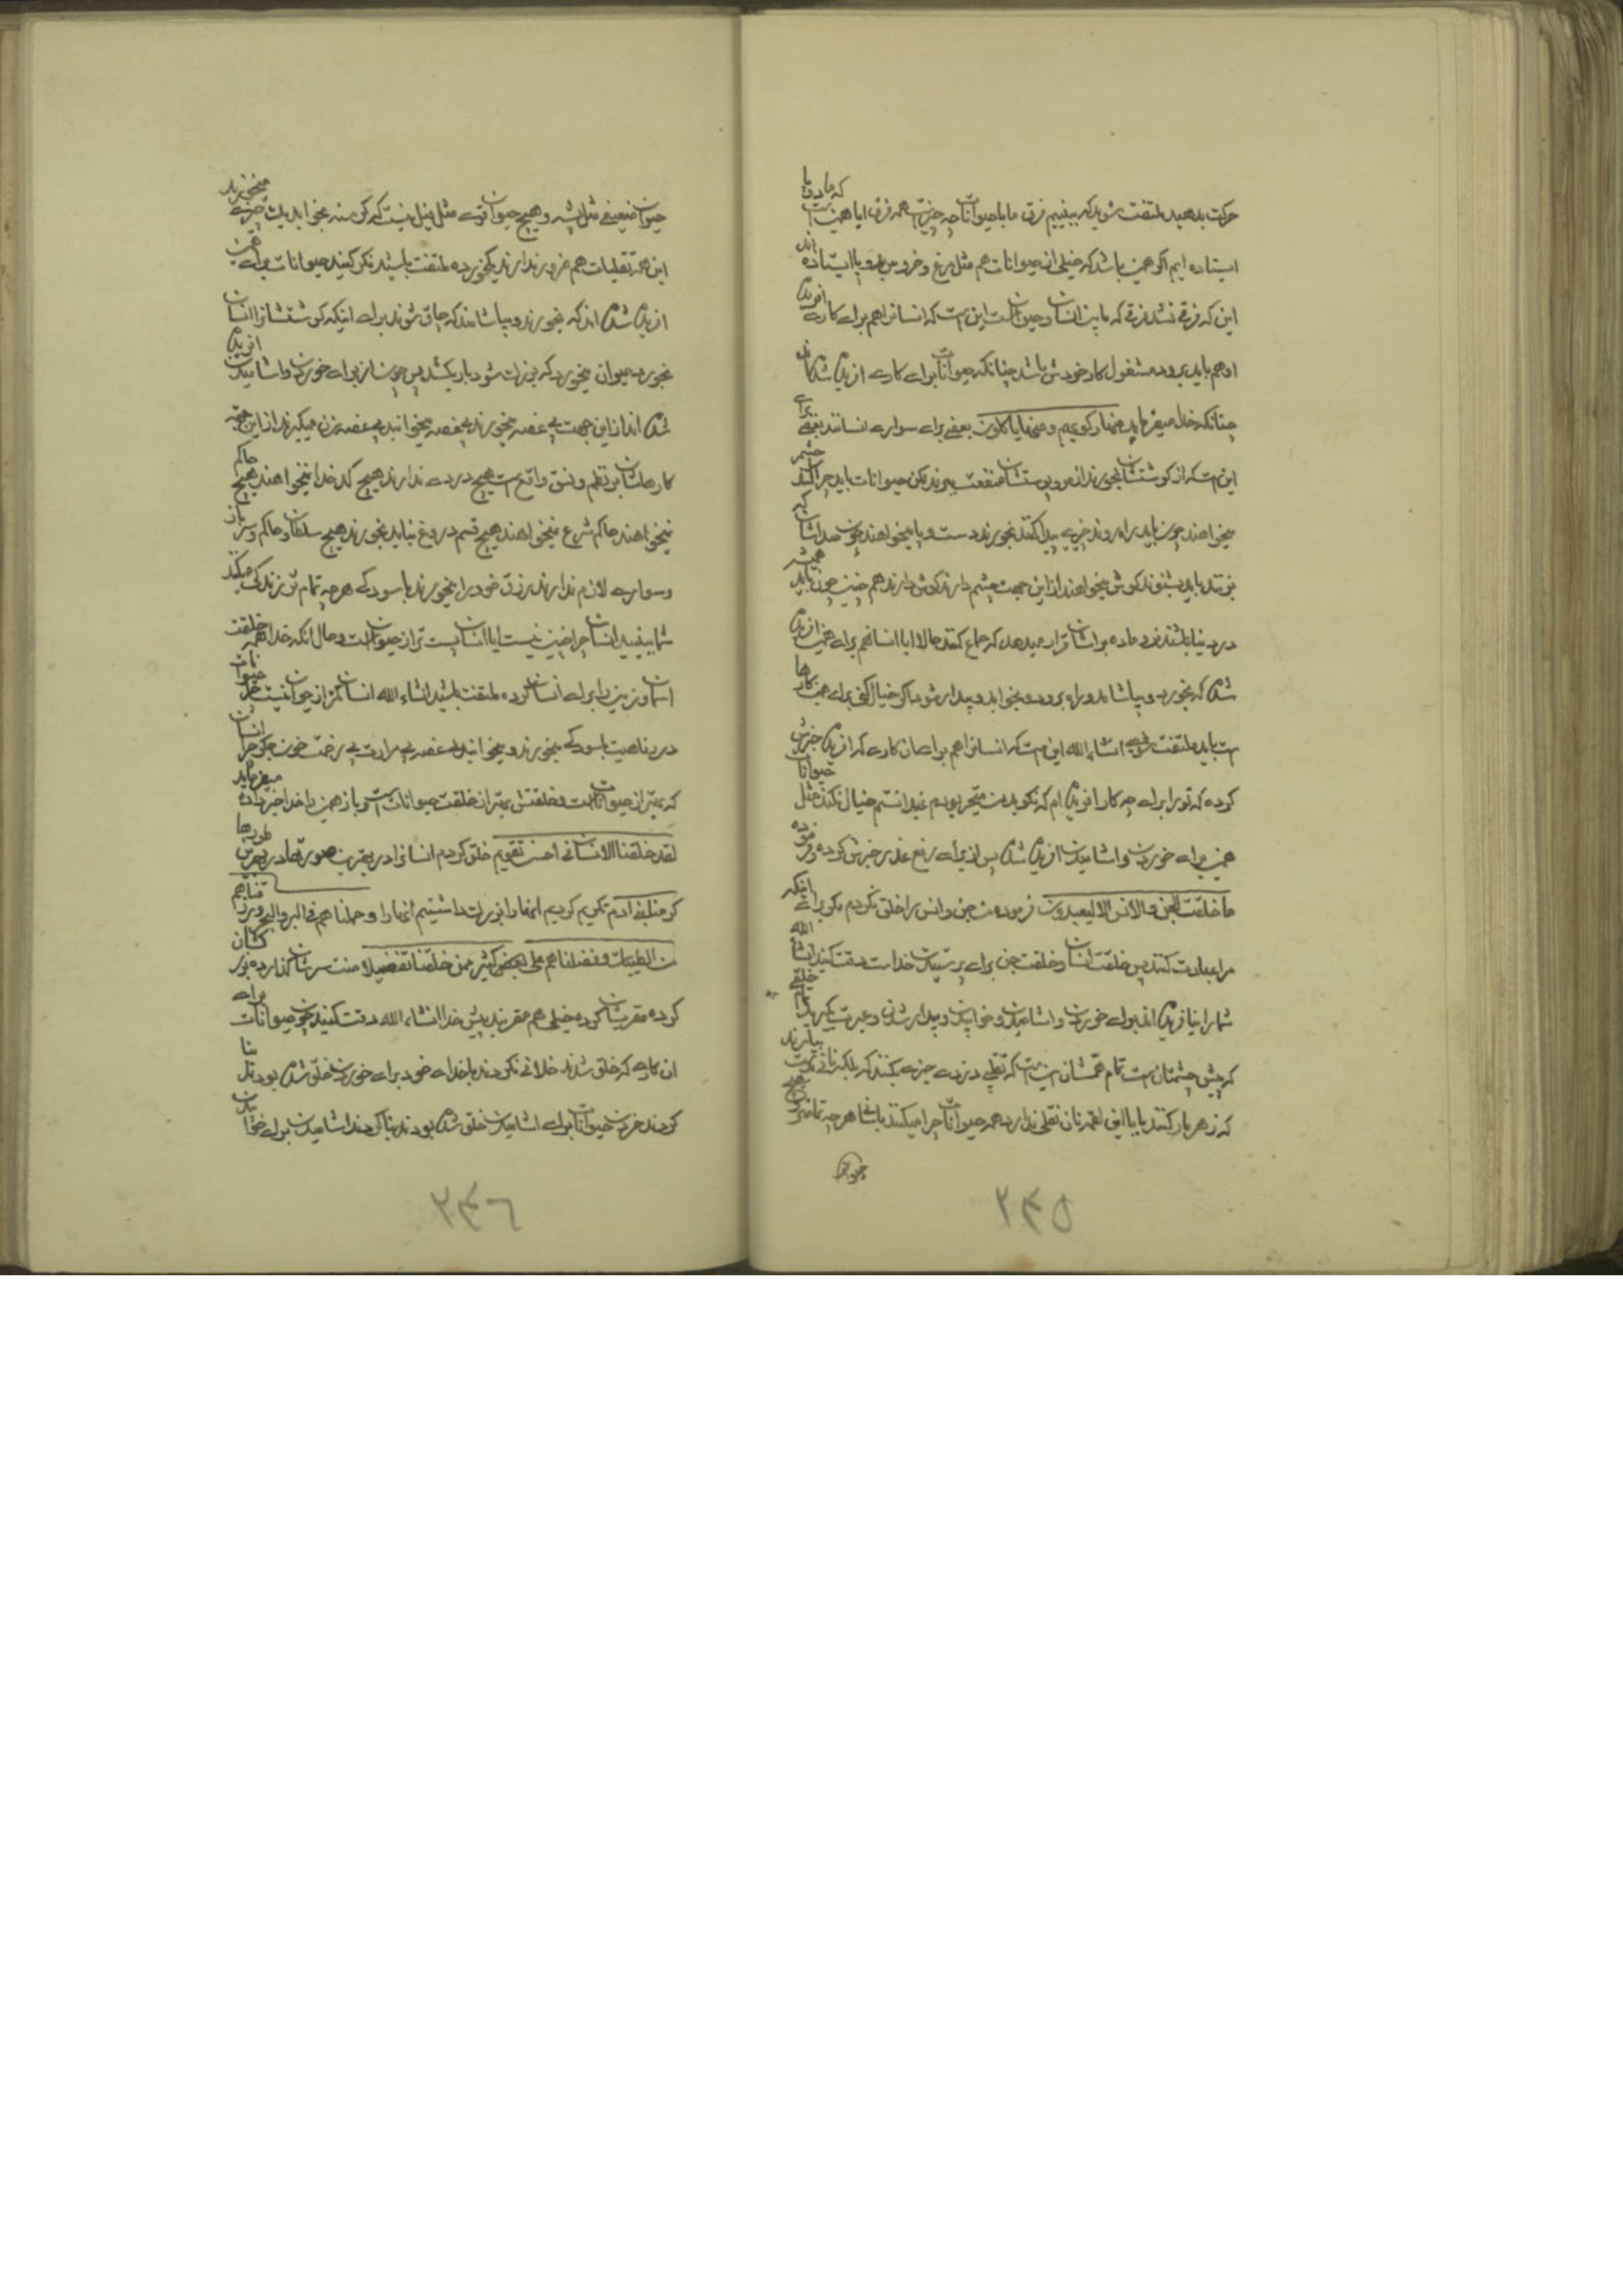 حرکت بدهید ملتفت شوید که ببینیم فرق ما با حیوانات چه چیز است همه فرق ایا همین است که ما دو پا
ایستاده ایم اکر همین باشد که خیلی از حیوانات هم مثل مرغ و خروس بدو پا ایستاده اند
این که فرقی نشد فرقی که مابین انسان و حیوان است این است که انسانرا هم برای کاری افریده
او هم باید برود مشغول کار خودش باشد چنانکه حیوانات برای کاری افریده شده اند
چنانکه خدا میفرماید فمنها رکوبهم و منها یاکلون بعضی برای سواری انسانند بعضی برای
این است که از کوشتشان بخورند از مو و پوستشان منفعت ببرند لکن حیوانات باید چرا کنند چشم
میخواهند چون باید راه روند چیزی پیدا کنند بخورند دست و پا میخواهند چون صداشان که
بزنند باید بشنوند کوش میخواهند از این جهت چشم دارند کوش دارند هم چنین چون باید همیشه
در دنیا باشند نر و ماده براشان قرار میدهد که جماع کنند حالا ایا انسانهم برای همین افریده
شده که بخورد و بیاشامد و راه برود و بخوابد و بیدار شود اکر خیال کنی برای همین کارها
است باید ملتفت شوید انشاء الله این است که انسانرا هم برای ان کاری که افریده خبرش
کرده که تو را برای چه کار افریده ام که نکوید من متحیر بودم نمیدانستم خیال نکند مثل حیوانات
همین برای خوردن و اشامیدن افریده شده پس از برای رفع عذر خبرش کرده و فرموده
ما خلقت الجن و الانس الا لیعبدون فرموده من جن و انس را خلق نکردم مکر برای اینکه
مرا عبادت کنند پس خلقت انسان و خلقت جن برای پرستیدن خداست دقت کنید انشاء الله
شما را نیافریده اند برای خوردن و اشامیدن و خوابیدن و بیدار شدن و عبرت بکیرید از خلقی
که پیش چشمتان است تمام همشان این است که تقلبی دزدی چیزی بکنند که بلکه نانی بدست بیارند
که زهر مار کنند بابا این لقمه نان نقلی ندارد همه حیوانات چرا میکنند باینجا هر چه تمامتر
حیوان
۲۴۵
حیوان ضعیفی مثل پشه و هیچ حیوان قوی مثل فیل نیست که کرسنه بخوابد یک چیزی میخورند
این همه تقلبات هم ضرور ندارند یکجوره ملتفت باشید فکر کنید حیوانات برای همین
افریده شده اند که بخورند و بیاشامند که چاق شوند برای اینکه کوشتشانرا انسان
بخورد حیوان میخورد که بزرک شود بار بکشد پس چون از برای خوردن و اشامیدن افریده
شده اند از این جهت بی غصه میخورند بی غصه میخوابند بی غصه زن میکیرند از این جهته
کارهاشان بر نظم و نسق واقع است هیچ دردی ندارند هیچ کدخدا نمیخواهند هیچ حاکم
نمیخواهند حاکم شرع نمیخواهند هیچ قسم دروغ نباید بخورند هیچ سلطان و حاکم و سرباز
و سواری لازم ندارند رزق خود را میخورند باسودکی هر چه تمام تر زندکی میکنند
شما ببینید انسان چرا چنین نیست ایا انسان پست تر از حیوان است و حال انکه خدا همه خلقت
اسمان و زمین را برای انسان کرده ملتفت باشید انشاء الله انسان کمتر از حیوان نیست چرا حیوانات
در رفاهیت باسودکی میخورند و میخوابند بی غصه بی مرارت بی زحمت خون جکر چرا انسان
که بهتر از حیوانات است و خلقتش بهتر از خلقت حیوانات است و باز همین را خدا خبر داده میفرماید
لقد خلقنا الانسان فی احسن تقویم خلق کردم انسانرا در بهترین صورتها در بهترین طورها
کرمنا بنی آدم تکریم کردیم انها را بزرک داشتیم انها را و حملناهم فی البر و البحر و رزقناهم
من الطیبات و فضلناهم علی کثیر ممن خلقنا تفضیلا منت سرشان کذارده بزرکشان
کرده مقربشان کرده خیلی هم مقربند پیش خدا انشاء الله دقت کنید چون حیوانات برای
ان کاری که خلق شدند خلافی نکردند با خدای خود برای خوردن خلق شده بودند بنا
کردند خوردن حیوانات برای اشامیدن خلق شده بودند بنا کردند اشامیدن برای خوابیدن
۲۴۶